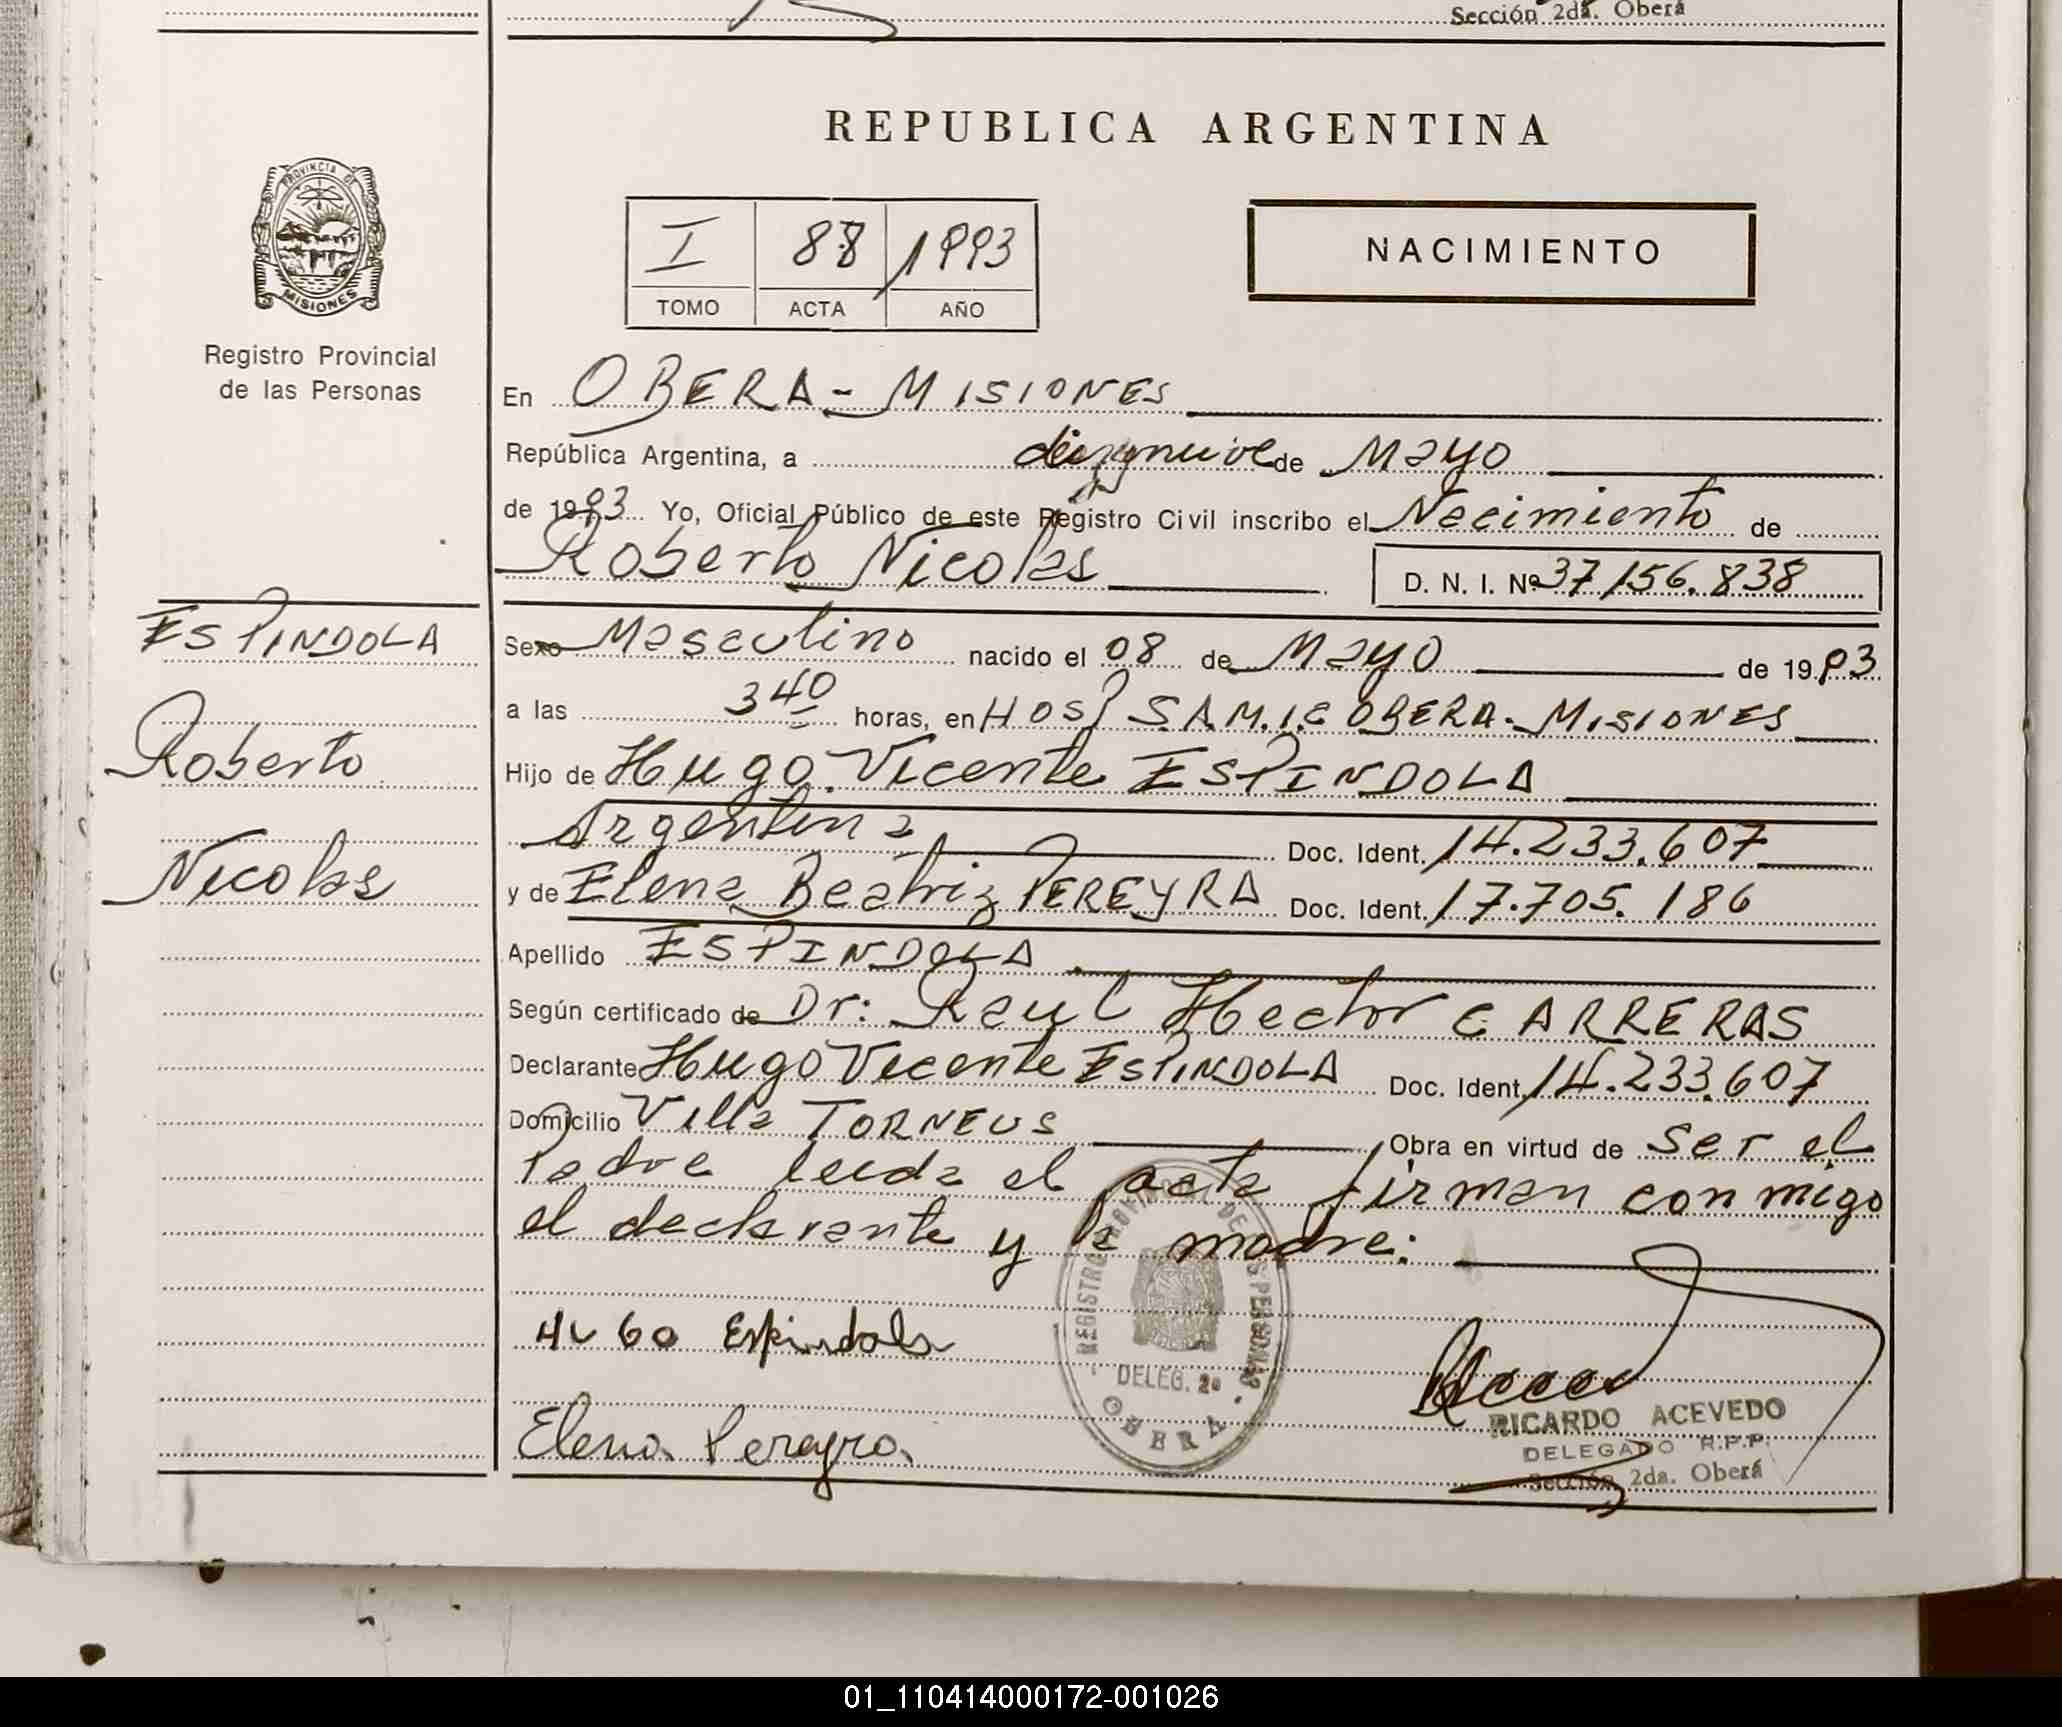 Sección 2da. Oberá
REPUBLICA ARGENTINA
PROVINCIA DE
MISIONES
Registro Provincial
de las Personas
I 88 1993
TOMO ACTA AÑO
NACIMIENTO
En OBERA - MISIONES
República Argentina, a diesynueve de Mayo
de 1993 Yo, Oficial Público de este Registro Civil inscribo el Nacimiento de
Roberto Nicolas D. N. I. Nº 37.156.838
ESPINDOLA
Roberto
Nicolas
Sexo Masculino nacido el 08 de Mayo de 1993
a las 3 40 horas, en HOSP S.A.M.I.C OBERA - MISIONES
Hijo de Hugo Vicente ESPINDOLA
Argentina Doc. Ident. 14.233.607
y de Elena Beatriz PEREYRA Doc. Ident. 17.705.186
Apellido ESPINDOLA
Según certificado de Dr: Raul Hector CARRERAS
Declarante Hugo Vicente ESPINDOLA Doc. Ident. 14.233.607
Domicilio Villa TORNEUS Obra en virtud de ser el
Padre leida el acta firman conmigo
el declarante y la madre:
HUGO Espindola
Elena Pereyra
REGISTRO PROVINCIAL DE LAS PERSONAS
DELEG. 2a
OBERA
RICARDO ACEVEDO
DELEGADO R.P.P.
Sección 2da. Oberá
01_110414000172-001026